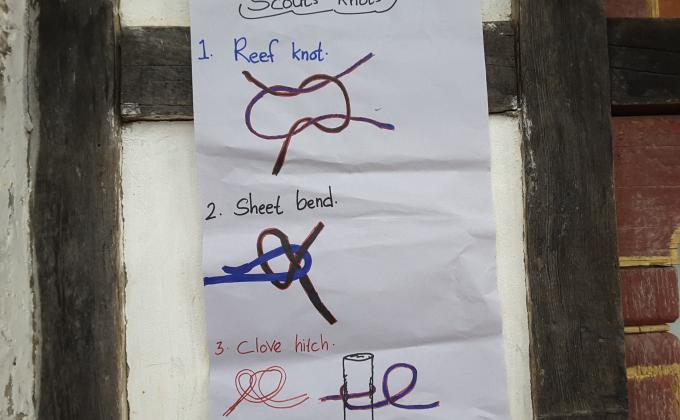 Scouts Knots
1. Reef knot.
2. Sheet bend.
3. Clove hitch.